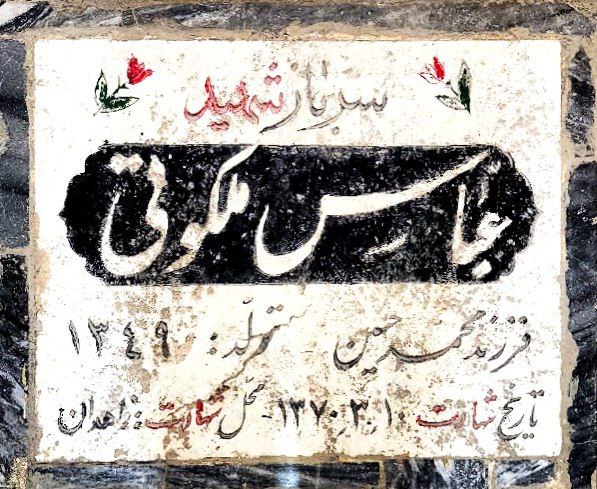 سرباز شهید
عباس ملکوتی
فرزند محمدحسین متولد: ۱۳۴۹
تاریخ شهادت ۱۳۷۰٫۳٫۱۰ محل شهادت: زاهدان